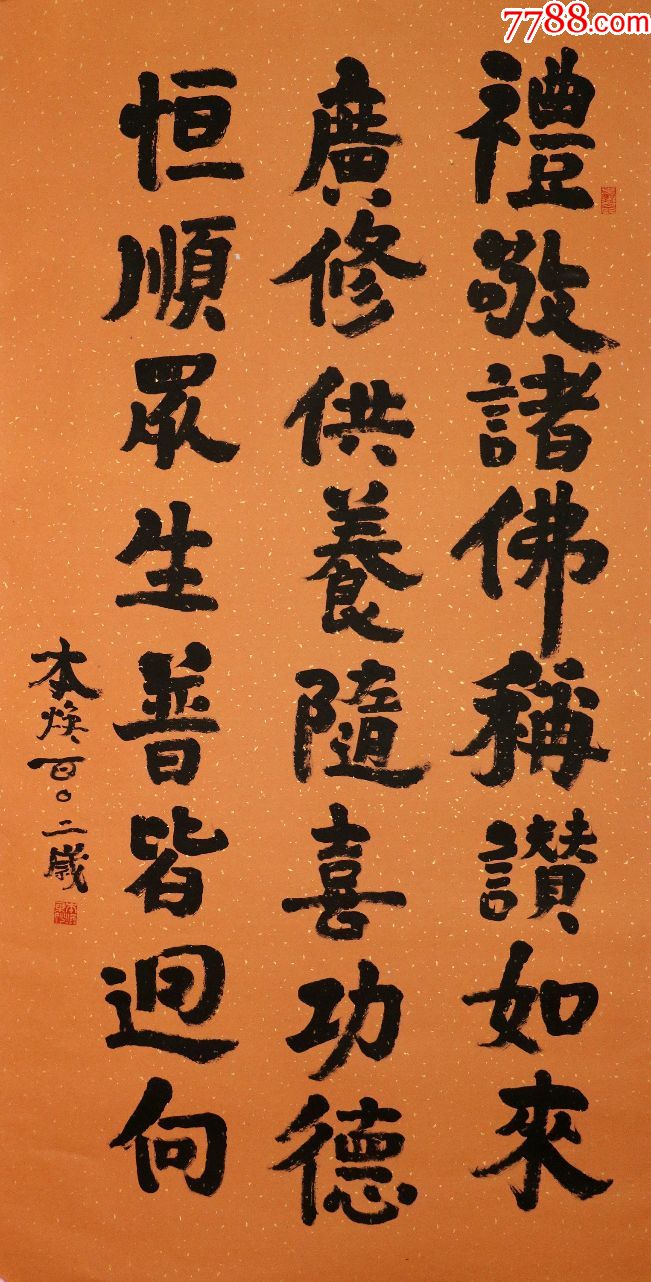 7788.com
禮敬諸佛稱讃如來
廣修供養隨喜功德
恒順眾生普皆迴向
本焕百〇二歲